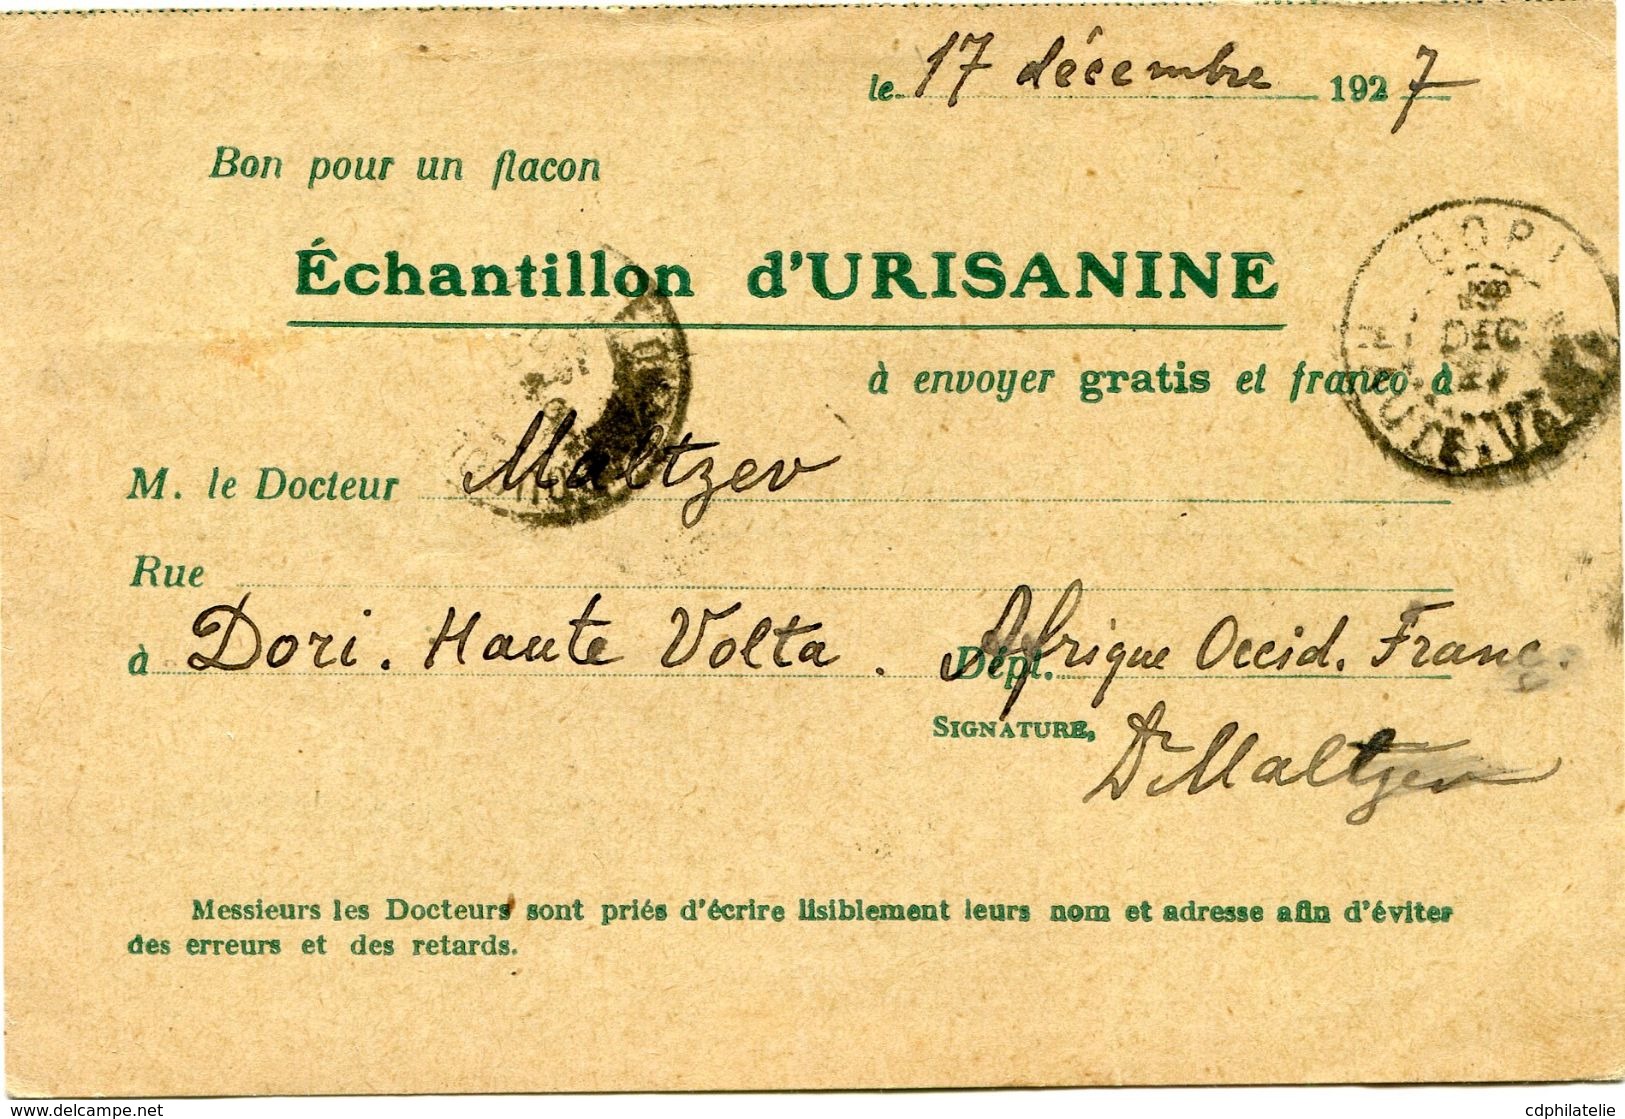 le 17 décembre 1927
Bon pour un flacon
Échantillon d'URISANINE
DORI
DEC
à envoyer gratis et franco à
M. le Docteur Maltzev
Rue
à Dori. Haute Volta. Dépt. Afrique Occid. Franc.
SIGNATURE,
Dr Maltzev
Messieurs les Docteurs sont priés d'écrire lisiblement leurs nom et adresse afin d'éviter
des erreurs et des retards.
www.delcampe.net
cdphilatelie